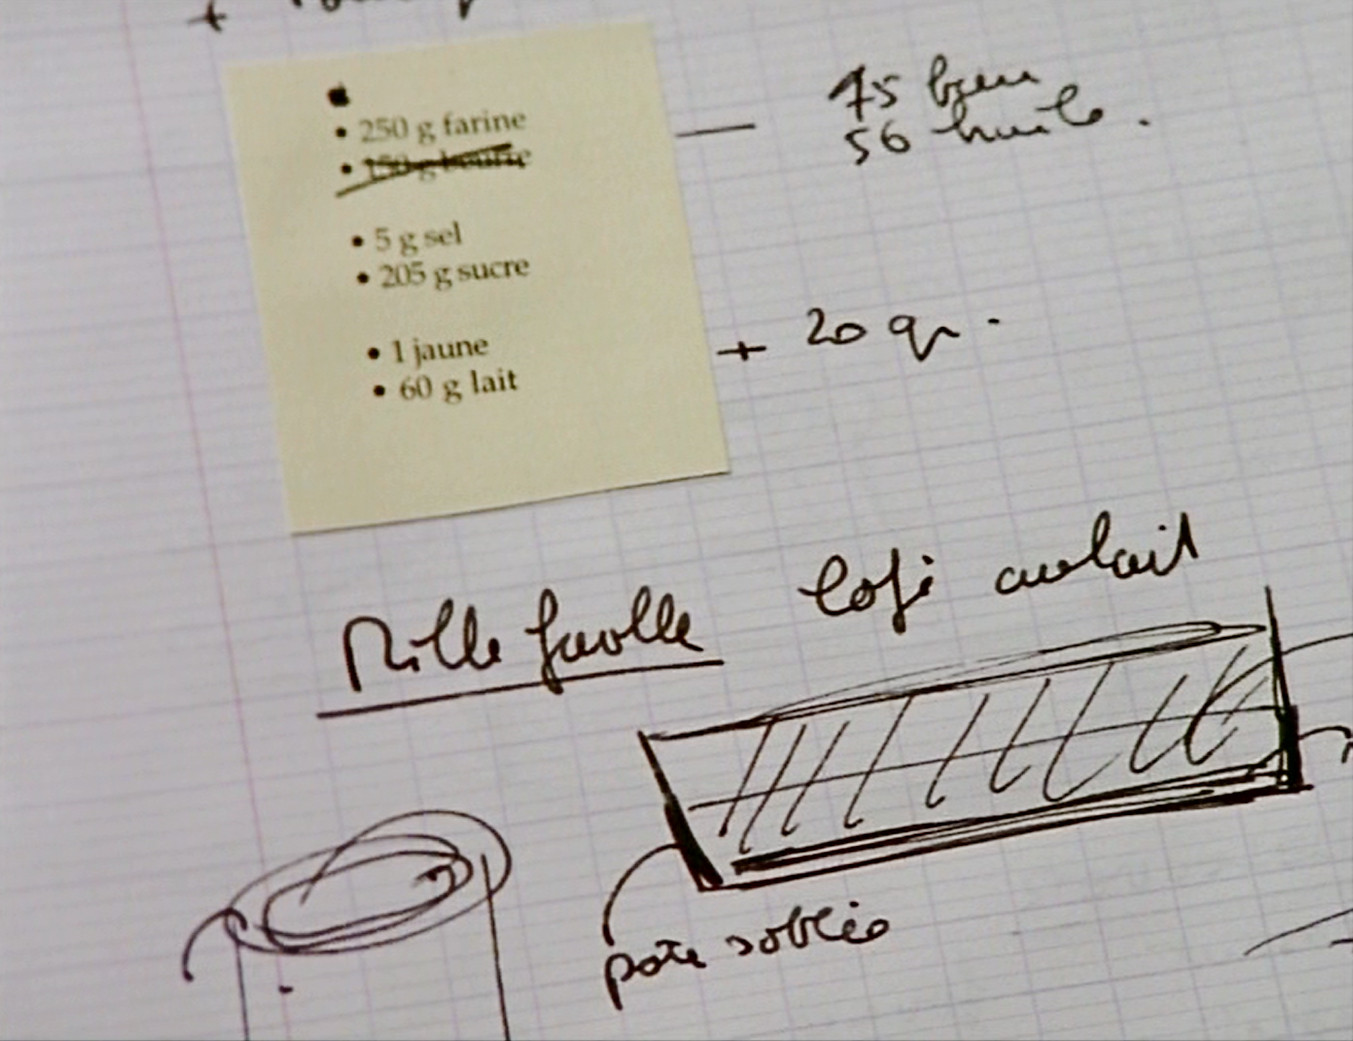 +
• 250 g farine
• 150 g beurre
— 45 beurre
56 huile.
• 5 g sel
• 205 g sucre
• 1 jaune
• 60 g lait
+ 20 gr.
Mille feuille Café au lait
pate sablée